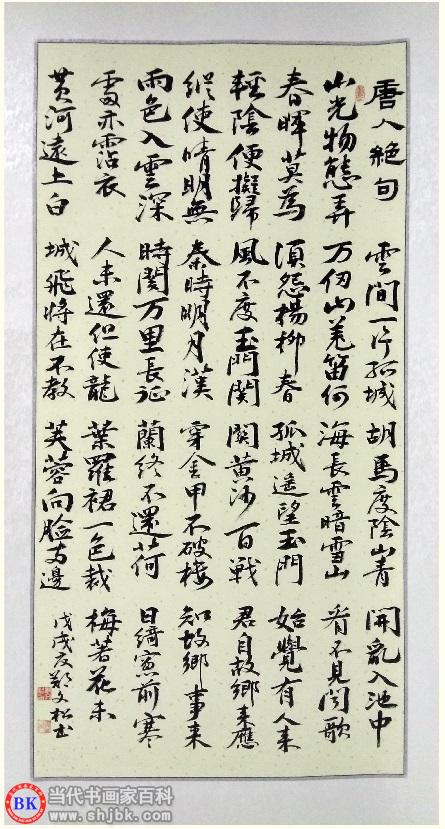 唐人絕句
山光物態弄
春暉莫為
輕陰便擬歸
縱使晴明無
雨色入雲深
處亦霑衣
黃河遠上白
雲間一片孤城
万仞山羌笛何
須怨楊柳春
風不度玉門關
秦時明月漢
時關万里長征
人未還但使龍
城飛將在不教
胡馬度陰山青
海長雲暗雪山
孤城遙望玉門
關黃沙百戰
穿金甲不破樓
蘭終不還荷
葉羅裙一色裁
芙蓉向臉兩邊
開亂入池中
看不見聞歌
始覺有人來
君自故鄉來應
知故鄉事來
日綺窻前寒
梅著花未
戊戌夏鄭文松書
BK
当代书画家百科
www.shjbk.com